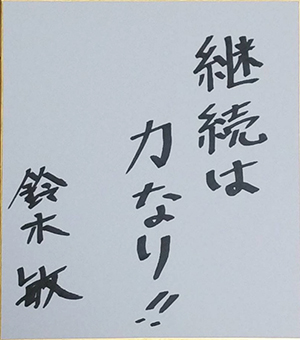 継続は
力なり!!
鈴木敏